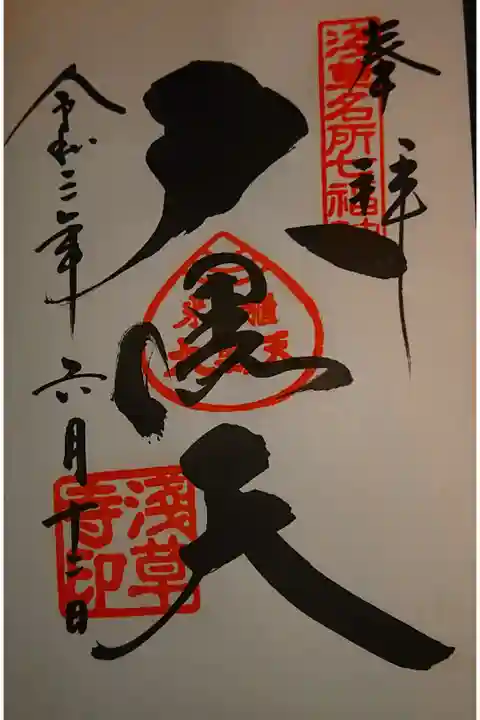 奉拝
浅草名所七福神
大黒天
淺草寺印
令和二年六月十二日